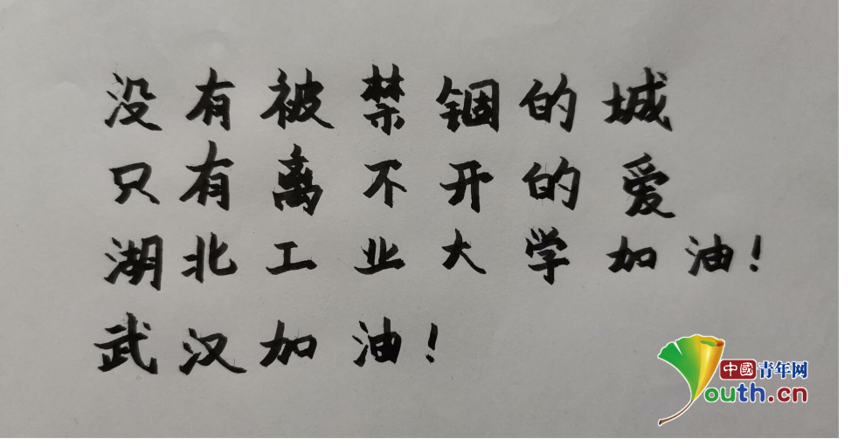 没有被禁锢的城
只有离不开的爱
湖北工业大学加油！
武汉加油！
中國青年网
youth.cn